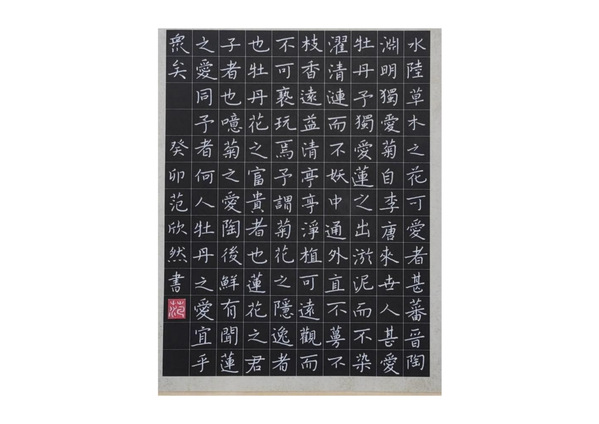 水陸草木之花可愛者甚蕃晉陶
淵明獨愛菊自李唐來世人甚愛
牡丹予獨愛蓮之出淤泥而不染
濯清漣而不妖中通外直不蔓不
枝香遠益清亭亭淨植可遠觀而
不可褻玩焉予謂菊花之隱逸者
也牡丹花之富貴者也蓮花之君
子者也噫菊之愛陶後鮮有聞蓮
之愛同予者何人牡丹之愛宜乎
衆矣 癸卯范欣然書
范